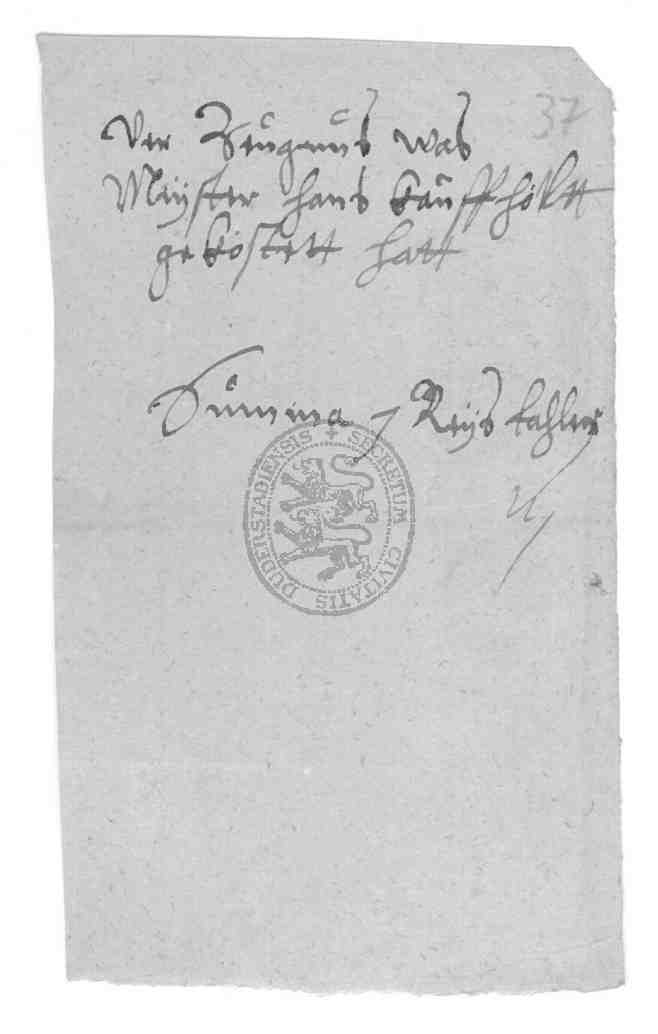 37
Ver Zeugnus was
Meyster hans kauffholtt
gekostett hatt
Summa 7 Reys tahler
SECRETUM CIVITATIS DUDERSTADIENSIS